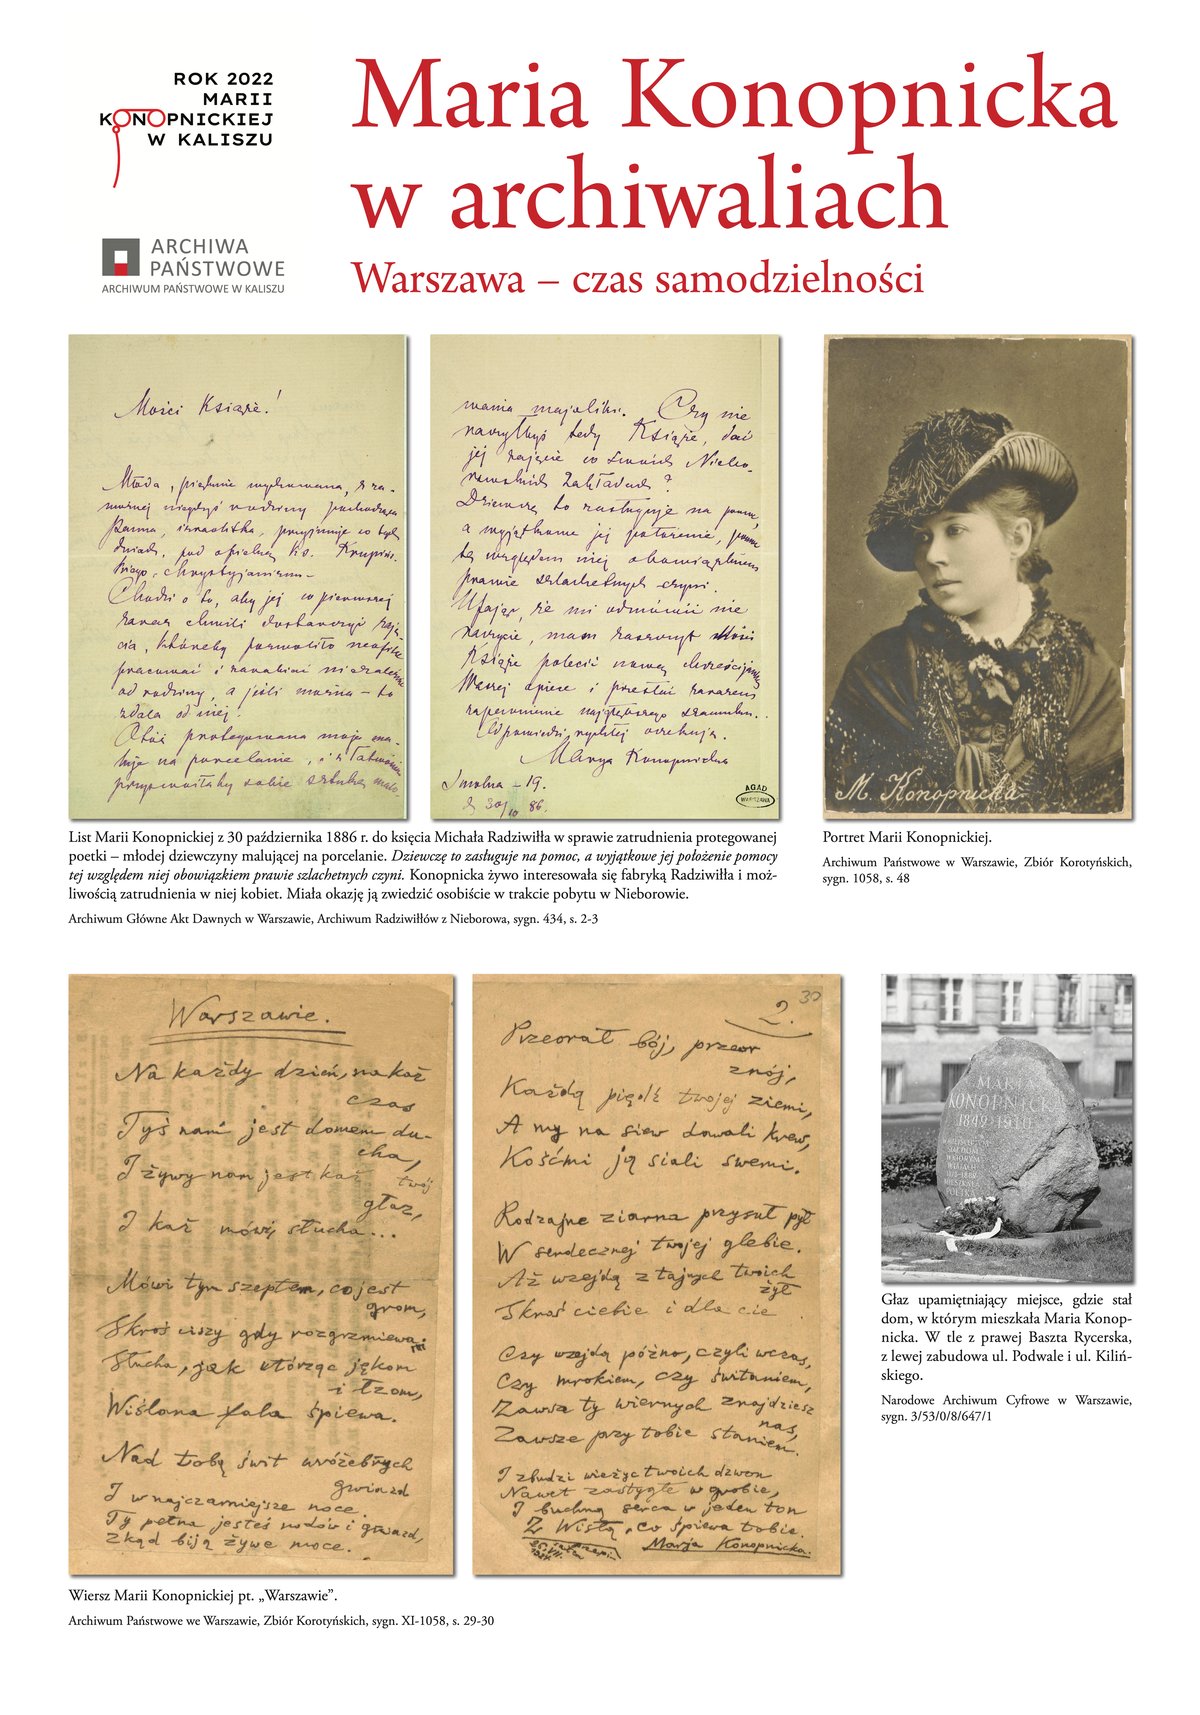 ROK 2022
MARII
KONOPNICKIEJ
W KALISZU
ARCHIWA
PAŃSTWOWE
ARCHIWUM PAŃSTWOWE W KALISZU
Maria Konopnicka
w archiwaliach
Warszawa – czas samodzielności
Mości Książe!
Młoda, pięknie wychowana, z za-
możnej niegdyś rodziny pochodząca
Panna, izraelitka, przyjmuje w tych
dniach, pod opieką Ks. Krupiń-
skiego, chrystyjanizm.
Chodzi o to, aby jej w pierwszej
zaraz chwili dostarczyć zaję-
cia, któreby pozwoliło neofitce
pracować i zarabiać niezależnie
od rodziny, a jeśli można – to
zdala od niej.
Otóż protegowana moja ma-
luje na porcelanie, i z łatwością
przyswoiłaby sobie sztukę malo-
wania majoliki. Czy nie
raczyłbyś tedy Książe, dać
jej zajęcie w swoich Niebo-
rowskich Zakładach?
Dziewczę to zasługuje na pomoc,
a wyjątkowe jej położenie, pomoc
tę względem niej obowiązkiem
prawie szlachetnych czyni.
Ufając, że mi odmówić nie
raczycie, mam zaszczyt Mości
Książe polecić nową chrześcijankę
Waszej opiece i przesłać zarazem
zapewnienie najgłębszego szacunku.
Odpowiedzi rychłej oczekuję.
Marya Konopnicka
Smolna – 19.
d. 30/10 86.
AGAD
WARSZAWA
M. Konopnicka
List Marii Konopnickiej z 30 października 1886 r. do księcia Michała Radziwiłła w sprawie zatrudnienia protegowanej
poetki – młodej dziewczyny malującej na porcelanie. Dziewczę to zasługuje na pomoc, a wyjątkowe jej położenie pomocy
tej względem niej obowiązkiem prawie szlachetnych czyni. Konopnicka żywo interesowała się fabryką Radziwiłła i moż-
liwością zatrudnienia w niej kobiet. Miała okazję ją zwiedzić osobiście w trakcie pobytu w Nieborowie.
Archiwum Główne Akt Dawnych w Warszawie, Archiwum Radziwiłłów z Nieborowa, sygn. 434, s. 2-3
Portret Marii Konopnickiej.
Archiwum Państwowe w Warszawie, Zbiór Korotyńskich,
sygn. 1058, s. 48
Warszawie.
Na każdy dzień, na każ
czas
Tyś nam jest domem du-
cha,
I żywy nam jest każ twój
głaz,
I każ mówi, słucha...
Mówi tym szeptem, co jest
grom,
Skroś ciszy gdy rozgrzmiewa
Słucha, jak wtórząc jękom
i łzom,
Wiślana fala śpiewa.
Nad tobą świt wróżebnych
gwiazd
I w najczarniejsze noce.
Ty pełna jesteś rodów i gniazd,
Zkąd biją żywe moce.
30
2.
Przeorał bój, przeor
znój,
Każdą piędź twojej ziemi,
A my na siew dawali krew,
Kośćmi ją siali swemi.
Rodzajne ziarna przysuł pył
W serdecznej twojej glebie.
Aż wzejdą z tajnych twoich
żył
Skroś ciebie i dla cie
Czy wzejdą późno, czyli wczas,
Czy mrokiem, czy świtaniem,
Zawsze ty wiernych znajdziesz
nas,
Zawsze przy tobie staniem.
I zbudzi wieżyc twoich dzwon
Nawet zastygłe w grobie,
I buchną serca w jeden ton
Z Wisłą, co śpiewa tobie.
Marja Konopnicka.
MARIA
KONOPNICKA
1842-1910
Głaz upamiętniający miejsce, gdzie stał
dom, w którym mieszkała Maria Konop-
nicka. W tle z prawej Baszta Rycerska,
z lewej zabudowa ul. Podwale i ul. Kiliń-
skiego.
Narodowe Archiwum Cyfrowe w Warszawie,
sygn. 3/53/0/8/647/1
Wiersz Marii Konopnickiej pt. „Warszawie”.
Archiwum Państwowe we Warszawie, Zbiór Korotyńskich, sygn. XI-1058, s. 29-30